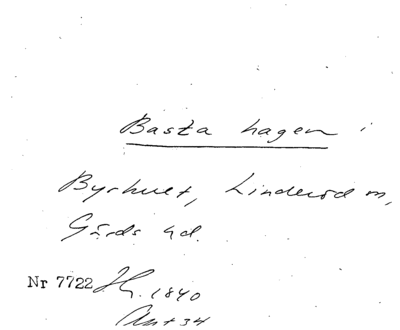 Basta hagen i
Byrhult, Linderöd sn,
Gärds hd.
Nr 7722 1840
Ant 34